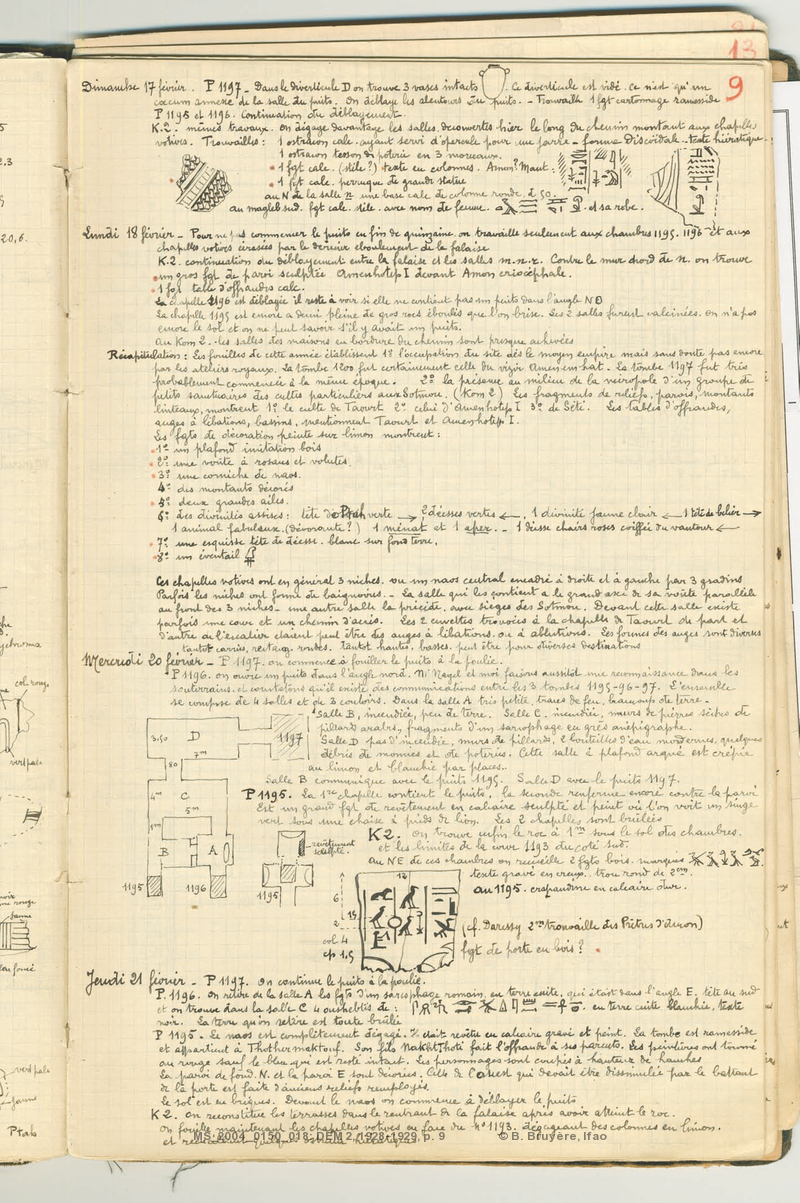 13
9
Dimanche 17 février. P 1197 - Dans le diverticule D on trouve 3 vases intacts. Ce diverticule est vidé. Ce n'est qu'un
cæcum annexe de la salle du puits. On déblaye les alentours du puits. - Trouvaille 1 fgt cartonnage ramesside
P 1195 et 1196. Continuation du déblayement.
K.2. mêmes travaux. On dégage davantage les salles découvertes hier le long du chemin montant aux chapelles
votives. Trouvailles : 1 ostracon calc. ayant servi d'opercule pour une jarre - forme discoïdale - texte hiératique.
1 ostracon tesson de poterie en 3 morceaux.
1 fgt calc. (stèle?) texte en colonnes. Amon? Maut :
1 fgt calc. perruque de grande statue
au N de la salle n une base calc. de colonne ronde. d 50.
au magleb sud. fgt calc. stèle. avec nom de femme. et sa robe.
Lundi 18 février - Pour ne pas commencer le puits en fin de quinzaine on travaille seulement aux chambres 1195. 1196 et aux
chapelles votives écrasées par le dernier éboulement de la falaise
K.2. continuation du déblayement entre la falaise et les salles m.n.r. Contre le mur nord de n. on trouve
un gros fgt de paroi sculptée Amenhotep I devant Amon criocéphale.
1 fgt table d'offrandes calc.
La chapelle 1196 est déblayée il reste à voir si elle ne contient pas un puits dans l'angle NO
La chapelle 1195 est encore à demi pleine de gros rocs éboulés que l'on brise. Les 2 salles furent calcinées. On n'a pas
encore le sol et on ne peut savoir s'il y avait un puits.
Au Kom 2. les salles des maisons en bordure du chemin sont presque achevées
Récapitulation : Les fouilles de cette année établissent 1º l'occupation du site dès le moyen empire mais sans doute pas encore
par les ateliers royaux. La tombe 1200 fut certainement celle du vizir Amenemhat. La tombe 1197 fut très
probablement commencée à la même époque. 2º la présence au milieu de la nécropole d'un groupe de
petits sanctuaires des cultes particuliers aux Sotmou. (Kom 2) Les fragments de reliefs, parois, montants
linteaux, montrent 1º le culte de Taourt 2º celui d'Amenhotep I 3º de Séti. Les tables d'offrandes,
auges à libations, bassins, mentionnent Taourt et Amenhotep I.
Les fgts de décoration peinte sur limon montrent :
1º un plafond imitation bois
2º une voûte à rosaces et volutes.
3º une corniche de naos.
4º des montants décorés
5º deux grandes ailes.
6º des divinités assises : tête de Ptah verte →, 2 déesses vertes ←, 1 divinité jaune clair ← 1 tête de bélier →
1 animal fabuleux. (dévorante?) 1 ménat et 1 aper. - 1 déesse chairs roses coiffée du vautour ←
7º une esquisse tête de déesse. blanc sur fond terre.
8º un éventail
Ces chapelles votives ont en général 3 niches. ou un naos central encadré à droite et à gauche par 3 gradins
Parfois les niches ont forme de baignoires. - La salle qui les contient a le grand axe de sa voûte parallèle
au front des 3 niches - une autre salle la précède, avec sièges des Sotmou. Devant cette salle existe
parfois une cour et un chemin d'accès. Les 2 cuvettes trouvées à la chapelle de Taourt de part et
d'autre de l'escalier étaient peut être des auges à libations, ou à ablutions. Les formes des auges sont diverses
tantôt carrées, rectang. rondes. tantôt hautes, basses, peut être pour diverses destinations
Mercredi 20 février - P 1197. on commence à fouiller le puits à la poulie.
P 1196. on ouvre un puits dans l'angle nord. Mr Nagel et moi faisons aussitôt une reconnaissance dans les
souterrains et constatons qu'il existe des communications entre les 3 tombes 1195-96-97. L'ensemble
se compose de 4 salles et de 3 couloirs. Dans la salle A très petite, traces de feu, beaucoup de terre.
Salle B, incendiée, peu de terre. Salle C, incendiée, murs de pierres sèches de
pillards arabes, fragments d'un sarcophage en grès anépigraphe.
Salle D pas d'incendie, murs de pillards, 2 bouteilles d'eau modernes, quelques
débris de momies et de poteries. Cette salle à plafond arqué est crépie
au limon et blanchie par places.
Salle B communique avec le puits 1195. Salle D avec le puits 1197.
3.50
D
1197
7m
80
4m
C
5m
B
A
1195
1196
P 1195. La 1re chapelle contient le puits, la seconde renferme encore contre la paroi
Est un grand fgt de revêtement en calcaire sculpté et peint où l'on voit un singe
vert sous une chaise à pieds de lion. Les 2 chapelles sont brûlées
revêtement
sculpté.
1195
K2. On trouve enfin le roc à 1m sous le sol des chambres.
et les limites de la cour 1193 du coté sud.
Au NE de ces chambres on recueille 2 fgts bois. marqués
texte gravé en creux. trou rond de 2cm.
au 1195. crapaudine en calcaire dur.
12
6
15
2
col. 4
ep 1.5
(cf. Daressy 2me trouvaille des Prêtres d'Amon)
fgt de porte en bois?
Jeudi 21 février - P 1197. On continue le puits à la poulie.
P. 1196. On retire de la salle A les fgts d'un sarcophage romain, en terre cuite, qui était dans l'angle E. tête au sud
et on trouve dans la salle C 4 oushebtis de : en terre cuite blanchie, texte
noir. La terre qu'on retire est toute brûlée
P 1195. Le naos est complètement dégagé. Il était revêtu en calcaire gravé et peint. La tombe est ramesside
et appartient à Thothermaktouf. Son fils Nakht Thoti fait l'offrande à ses parents. Les peintures ont tourné
au rouge sauf le bleu qui est resté intact. Les personnages sont coupés à hauteur de hanches
La paroi de fond N. et la paroi E sont décorées. Celle de l'ouest qui devait être dissimulée par le battant
de la porte est faite d'anciens reliefs remployés.
le sol est en briques. Devant le naos on commence à déblayer le puits
K2. On reconstitue les terrasses dans le rentrant de la falaise après avoir atteint le roc.
On fouille maintenant les chapelles votives en face du nº 1193. dégageant des colonnes en limon.
MS_2004_0150_018_DEM 2,1928-1929, p. 9 © B. Bruyère, Ifao
2.3
20,6.
col. rouge
vert pale
jaune
Ptah